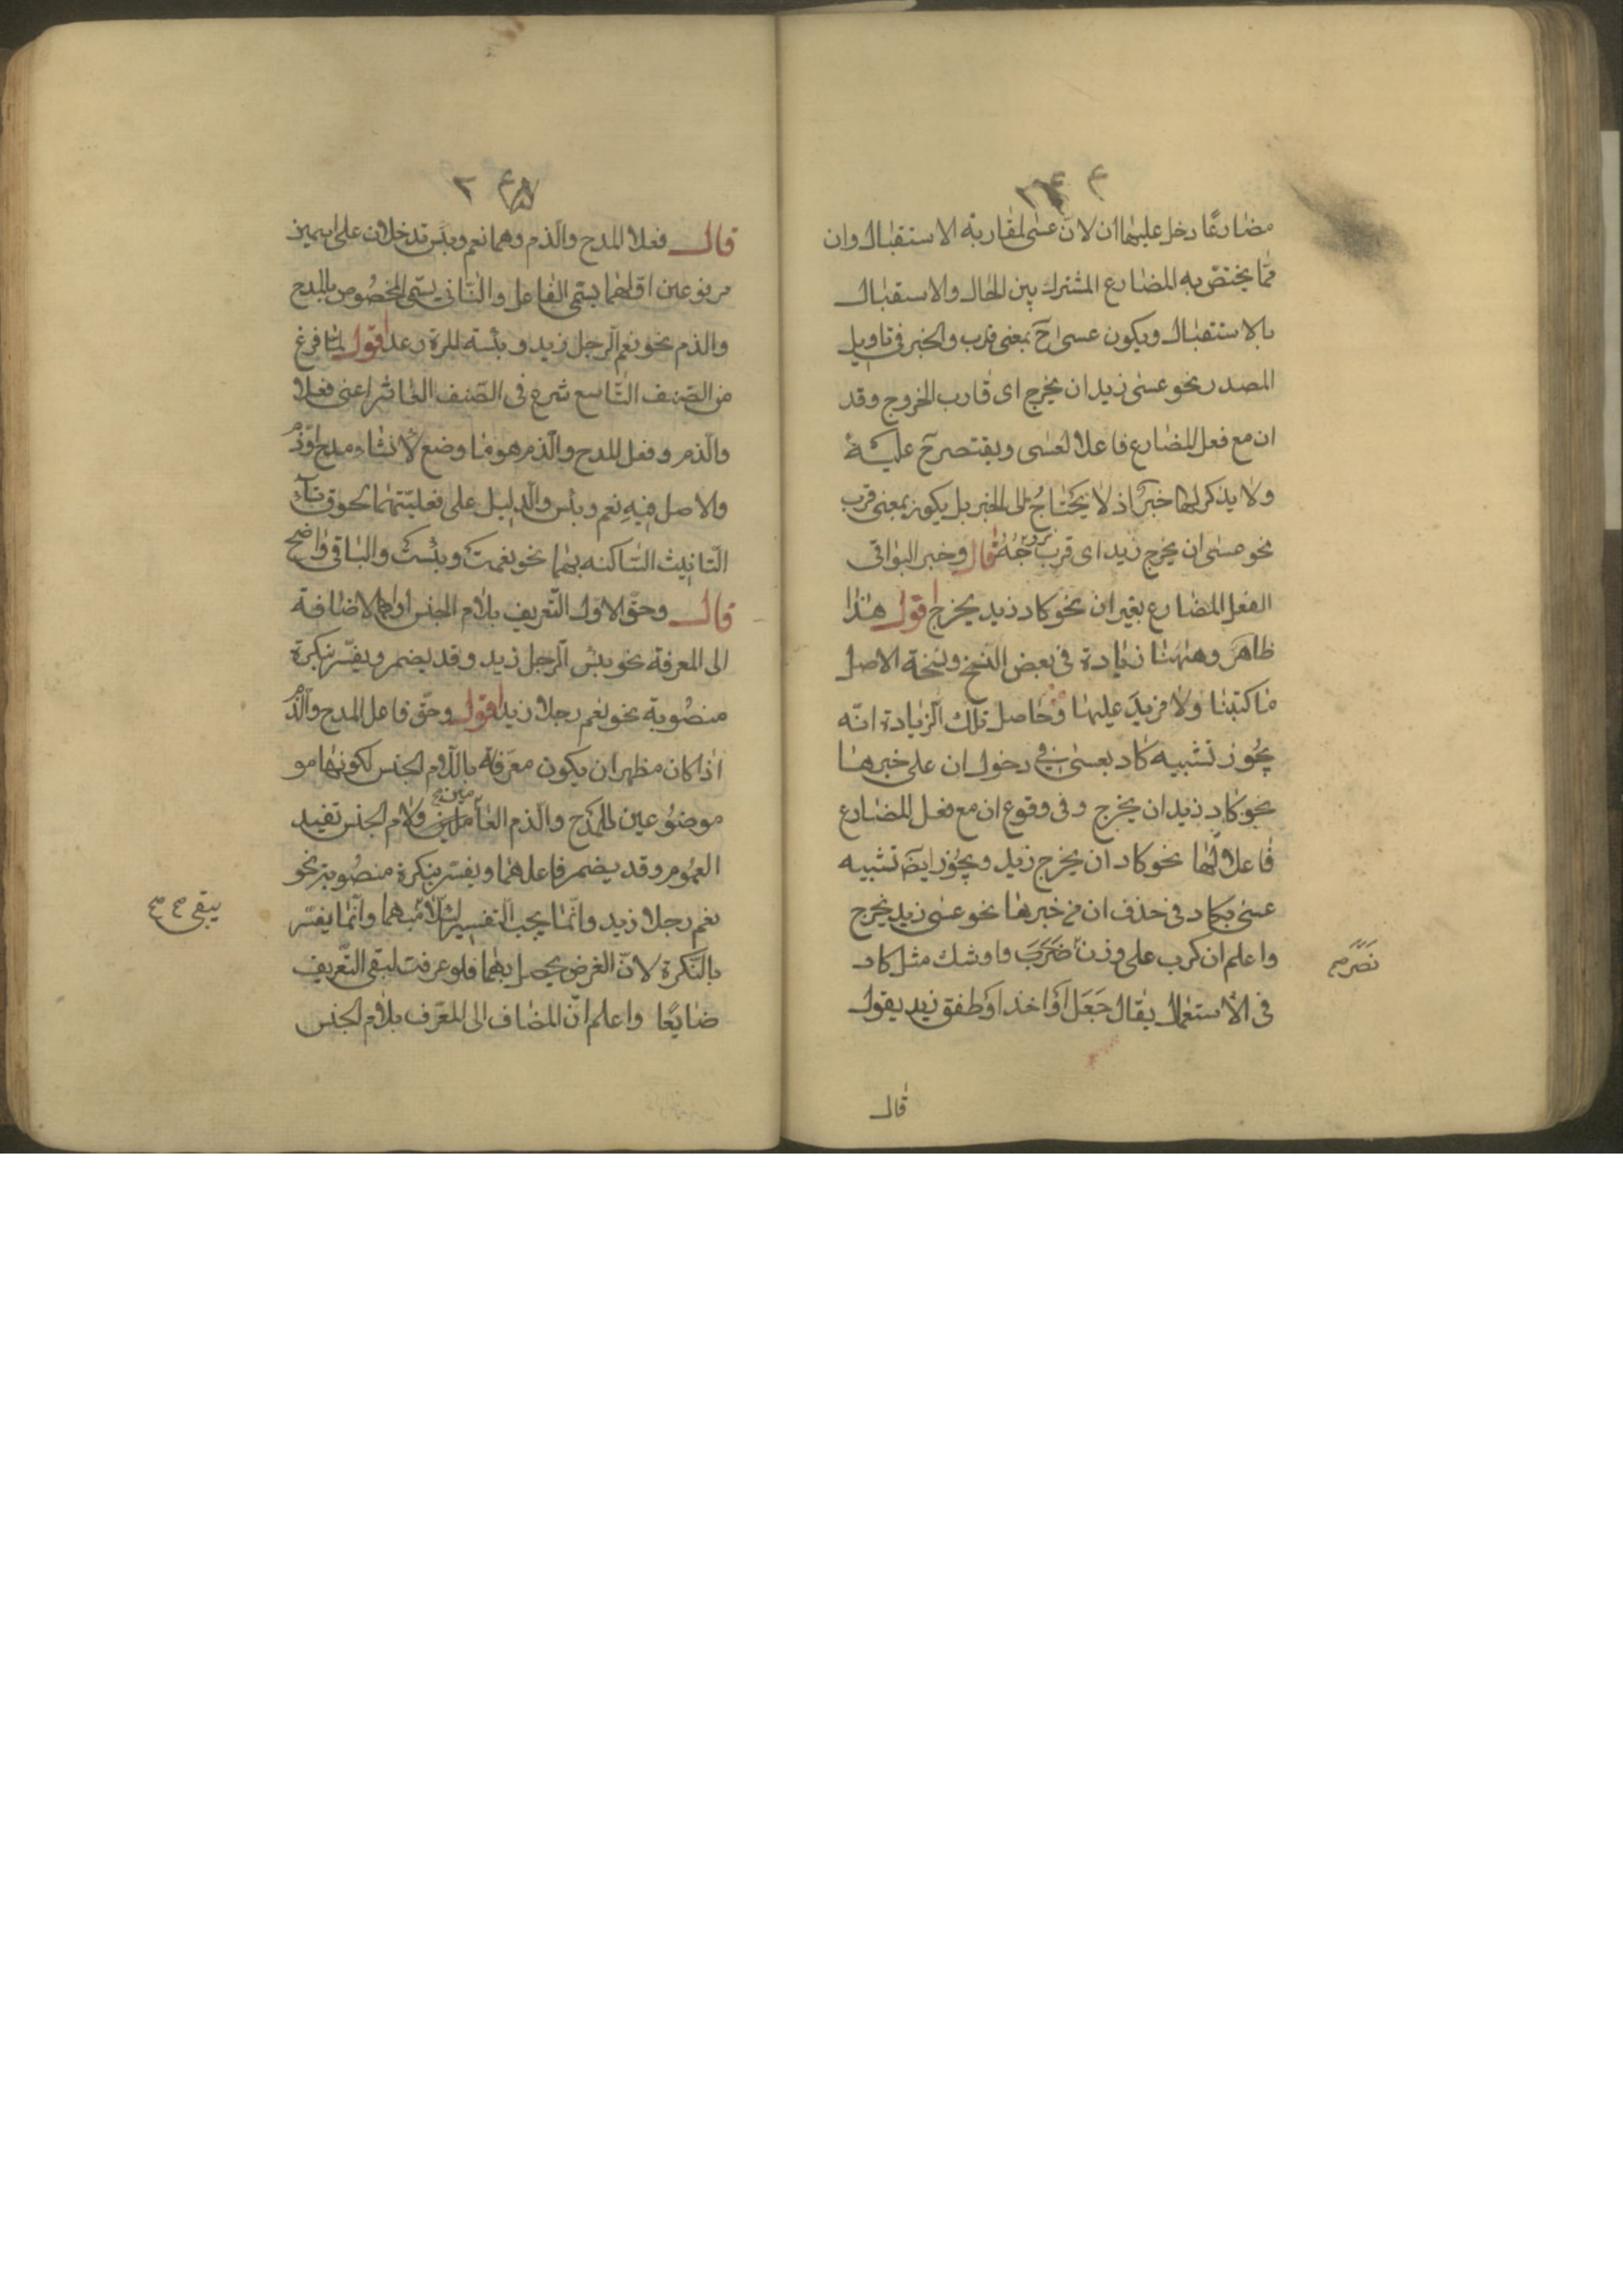 مضارعًا دخل عليها ان لان عسى لمقاربة الاستقبال وان
مما يختص به المضارع المشترك بين الحال والاستقبال
بالاستقبال ويكون عسى ح بمعنى قارب والخبر فى تاويل
المصدر نحو عسى زيد ان يخرج اى قارب الخروج وقد
ان مع فعل المضارع فاعلا لعسى ويقتصر ح عليه
ولا يذكر لها خبرًا اذ لا يحتاج الى الخبر بل يكون بمعنى قرب
نحو عسى ان يخرج زيد اى قرب خروجه قال وخبر البواقى
الفعل المضارع بغير ان نحو كاد زيد يخرج اقول هذا
ظاهر وههنا زيادة فى بعض النسخ ونسخة الاصل
ما كتبنا ولا مزيد عليها وحاصل تلك الزيادة انّه
يجوز تشبيه كاد بعسى فى دخول ان على خبرها
نحو كاد زيد ان يخرج وفى وقوع ان مع فعل المضارع
فاعلا لها نحو كاد ان يخرج زيد ويجوز ايضا تشبيه
عسى بكاد فى حذف ان من خبرها نحو عسى زيد يخرج
واعلم ان كرب على وزن ضَرَبَ واوشك مثل كاد
نَصَرَ صح
فى الاستعمال يقال جَعَلَ او اخذ او طفق زيد يقول
قال
قال فعلا المدح والذم وهما نعم وبئس تدخلان على اسمين
مرفوعين اوّلهما يسمّى الفاعل والثّانى يسمّى المخصوص بالمدح
والذم نحو نعم الرجل زيد وبئسة المرة دعد اقول لما فرغ
من الصّنف التّاسع شرع فى الصّنف العاشر اعنى فعلا
والذم وفعل المدح والذم هو ما وضع لانشاء مدح او ذم
والاصل فيه نعم وبئس والدليل على فعليّتهما لحوق تاء
التّانيث السّاكنه بهما نحو نعمت وبئست والباقى واضح
قال وحقّ الاوّل التّعريف بلام الجنس او الاضافة
الى المعرفة نحو بئس الرجل زيد وقد يضمر ويفسّر بنكرة
منصُوبة نحو نعم رجلا زيد اقول وحقّ فاعل المدح والذّم
اذا كان مظهر ان يكون معرّفة بالّلام الجنس لكونهما مو
موضُوعين للمَدْح والذم العامين ولام الجنس تفيد
العمُوم وقد يضمر فاعلهما ويفسّر بنكرة منصُوبة نحو
نعم رجلا زيد وانّما يجب التفسير لئلّا مبهما وانّما يفسّر
يبقى صح
بالنّكرة لانّ الغرض يحصل بهما فلو عرفت لبقى التّعريف
ضايعًا واعلم انّ المضاف الى المعّرف بلام الجنس